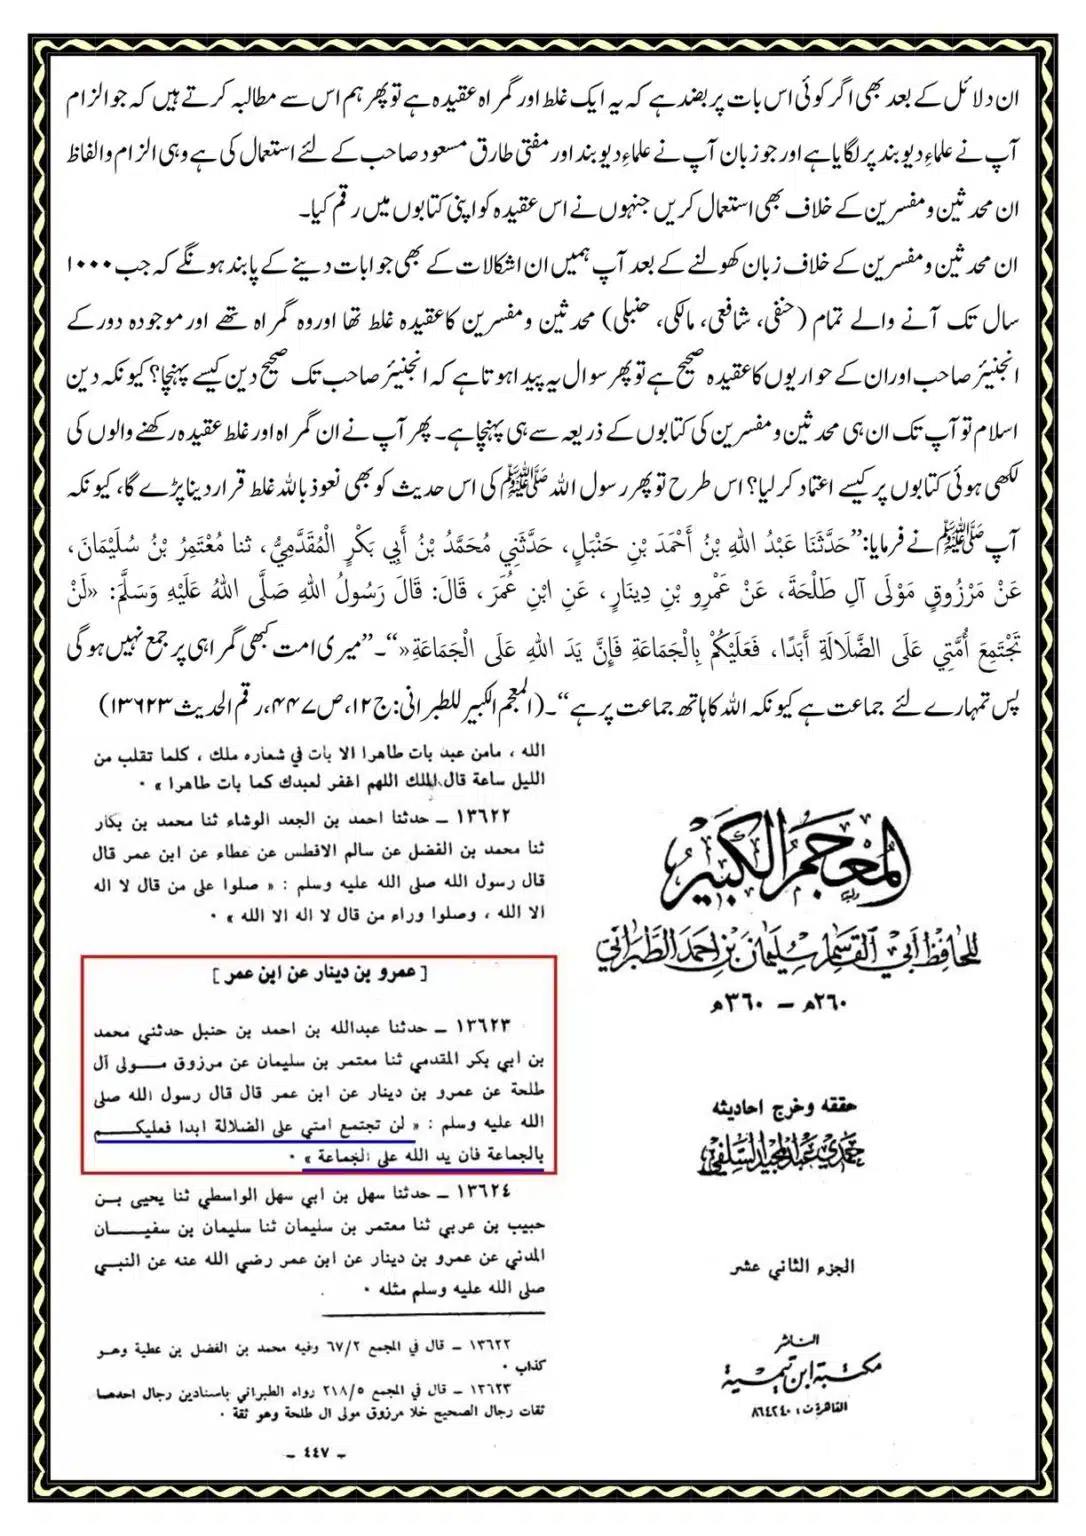 ان دلائل کے بعد بھی اگر کوئی اس بات پر بضد ہے کہ یہ ایک غلط اور گمراہ عقیدہ ہے تو پھر ہم اس سے مطالبہ کرتے ہیں کہ جو الزام
آپ نے علماءِ دیوبند پر لگایا ہے اور جو زبان آپ نے علماءِ دیوبند اور مفتی طارق مسعود صاحب کے لئے استعمال کی ہے وہی الزام والفاظ
ان محدثین و مفسرین کے خلاف بھی استعمال کریں جنہوں نے اس عقیدہ کو اپنی کتابوں میں رقم کیا۔
ان محدثین و مفسرین کے خلاف زبان کھولنے کے بعد آپ ہمیں ان اشکالات کے بھی جوابات دینے کے پابند ہونگے کہ جب ۱۰۰۰
سال تک آنے والے تمام (حنفی، شافعی، مالکی، حنبلی) محدثین و مفسرین کا عقیدہ غلط تھا اور وہ گمراہ تھے اور موجودہ دور کے
انجنیئر صاحب اور ان کے حواریوں کا عقیدہ صحیح ہے تو پھر سوال یہ پیدا ہوتا ہے کہ انجنیئر صاحب تک صحیح دین کیسے پہنچا؟ کیونکہ دین
اسلام تو آپ تک ان ہی محدثین و مفسرین کی کتابوں کے ذریعہ سے ہی پہنچا ہے۔ پھر آپ نے ان گمراہ اور غلط عقیدہ رکھنے والوں کی
لکھی ہوئی کتابوں پر کیسے اعتماد کرلیا؟ اس طرح تو پھر رسول اللہ ﷺ کی اس حدیث کو بھی نعوذ باللہ غلط قرار دینا پڑے گا، کیونکہ
آپ ﷺ نے فرمایا: ”حَدَّثَنَا عَبْدُ اللهِ بْنُ أَحْمَدَ بْنِ حَنْبَلٍ، حَدَّثَنِي مُحَمَّدُ بْنُ أَبِي بَكْرٍ الْمُقَدَّمِيُّ، ثنا مُعْتَمِرُ بْنُ سُلَيْمَانَ،
عَنْ مَرْزُوقٍ مَوْلَى آلِ طَلْحَةَ، عَنْ عَمْرِو بْنِ دِينَارٍ، عَنِ ابْنِ عُمَرَ، قَالَ: قَالَ رَسُولُ اللهِ صَلَّى اللهُ عَلَيْهِ وَسَلَّمَ: «لَنْ
تَجْتَمِعَ أُمَّتِي عَلَى الضَّلَالَةِ أَبَدًا، فَعَلَيْكُمْ بِالْجَمَاعَةِ فَإِنَّ يَدَ اللهِ عَلَى الْجَمَاعَةِ»“۔ ”میری امت کبھی گمراہی پر جمع نہیں ہوگی
پس تمہارے لئے جماعت ہے کیونکہ اللہ کا ہاتھ جماعت پر ہے“۔ (المعجم الکبیر للطبرانی: ج۱۲، ص۴۴۷، رقم الحدیث ۱۳۶۲۳)
المعجم الكبير
للحافظ أبي القاسم سليمان بن احمد الطبراني
٢٦٠هـ – ٣٦٠هـ
حققه وخرج احاديثه
حمدي عبد المجيد السلفي
الجزء الثاني عشر
الناشر
مكتبة ابن تيمية
القاهرة ت : ٨٦٤٢٤٠
الله ، مامن عبد بات طاهرا الا بات في شعاره ملك ، كلما تقلب من
الليل ساعة قال الملك اللهم اغفر لعبدك كما بات طاهرا » ٠
١٣٦٢٢ – حدثنا احمد بن الجعد الوشاء ثنا محمد بن بكار
ثنا محمد بن الفضل عن سالم الافطس عن عطاء عن ابن عمر قال
قال رسول الله صلى الله عليه وسلم : « صلوا على من قال لا اله
الا الله ، وصلوا وراء من قال لا اله الا الله » ٠
[ عمرو بن دينار عن ابن عمر ]
١٣٦٢٣ – حدثنا عبدالله بن احمد بن حنبل حدثني محمد
بن ابي بكر المقدمي ثنا معتمر بن سليمان عن مرزوق مولى آل
طلحة عن عمرو بن دينار عن ابن عمر قال قال رسول الله صلى
الله عليه وسلم : « لن تجتمع امتي على الضلالة ابدا فعليكم
بالجماعة فان يد الله على الجماعة » ٠
١٣٦٢٤ – حدثنا سهل بن ابي سهل الواسطي ثنا يحيى بن
حبيب بن عربي ثنا معتمر بن سليمان ثنا سليمان بن سفيان
المدني عن عمرو بن دينار عن ابن عمر رضي الله عنه عن النبي
صلى الله عليه وسلم مثله ٠
١٣٦٢٢ – قال في المجمع ٦٧/٢ وفيه محمد بن الفضل بن عطية وهو
كذاب ٠
١٣٦٢٣ – قال في المجمع ٢١٨/٥ رواه الطبراني باسنادين رجال احدهما
ثقات رجال الصحيح خلا مرزوق مولى ال طلحة وهو ثقة ٠
– ٤٤٧ –